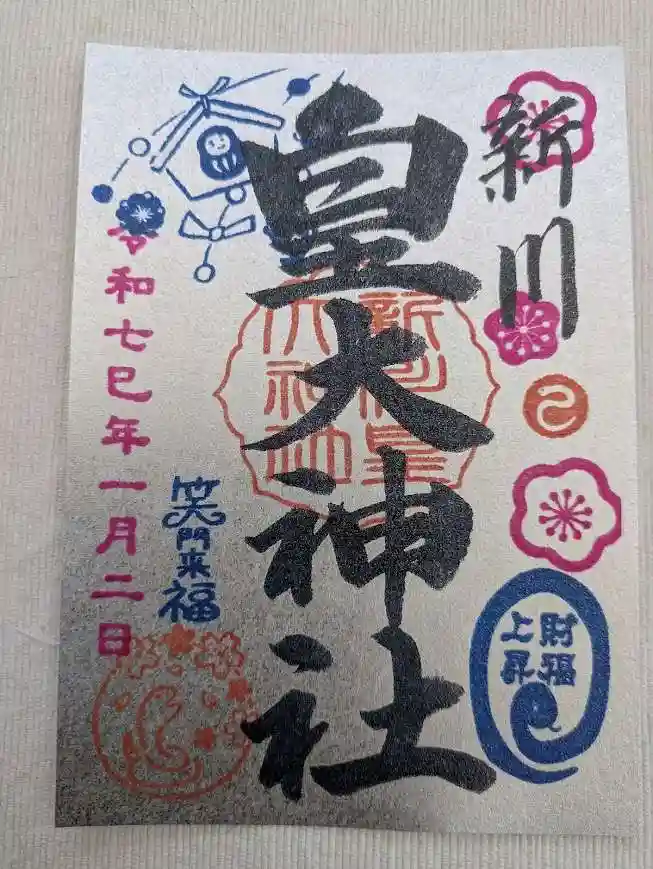 新川
皇大神社
新川皇
大神社
巳
財福
上昇
笑門来福
令和七巳年一月二日